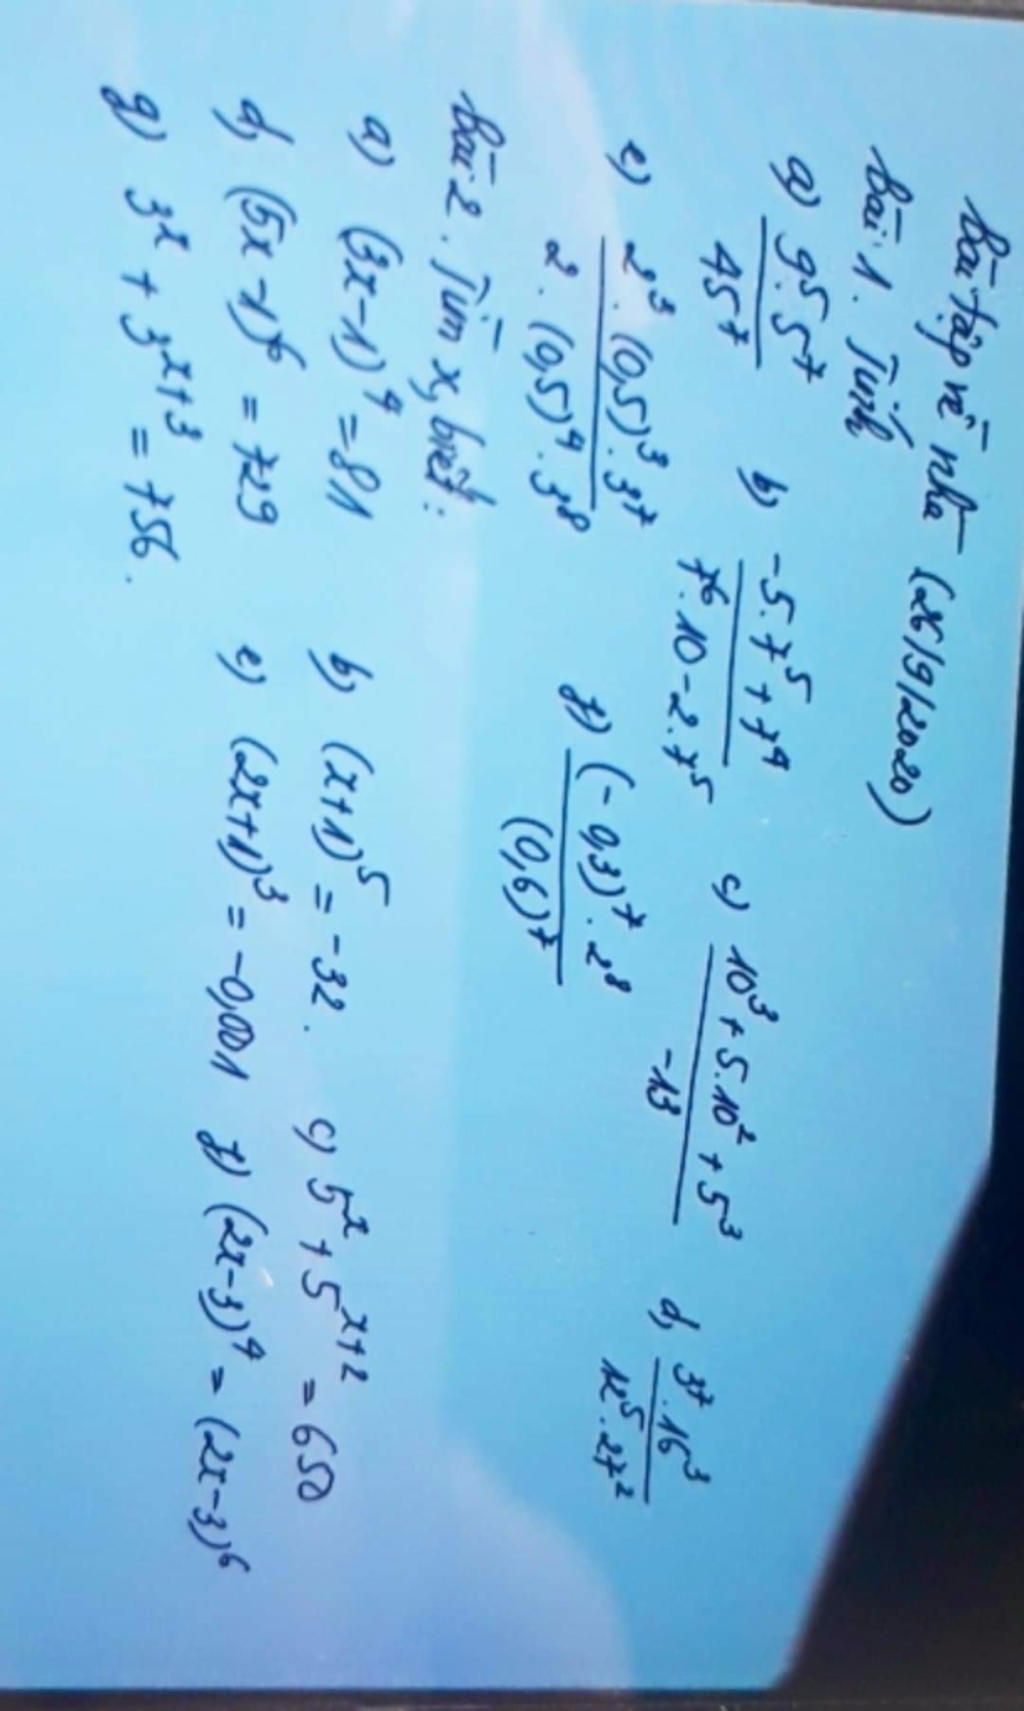 bài tập về nhà (26/9/2020)
bài 1. Tính
a) 9⁵.5⁷ / 45⁷ b) -5.7⁵ + 7⁴ / 7⁶.10 - 2.7⁵ c) 10³ + 5.10² + 5³ / -13 d) 3⁷.16³ / 12⁵.27²
e) 2³.(0,5)³.3⁷ / 2.(0,5)⁴.3⁸ f) (-0,3)⁷.2⁸ / (0,6)⁷
bài 2. Tìm x, biết:
a) (3x-1)⁴ = 81 b) (x+1)⁵ = -32. c) 5ˣ + 5ˣ⁺² = 650
d) (5x-1)⁶ = 729 e) (2x+1)³ = -0,001 f) (2x-3)⁴ = (2x-3)⁶
g) 3ˣ + 3ˣ⁺³ = 756.